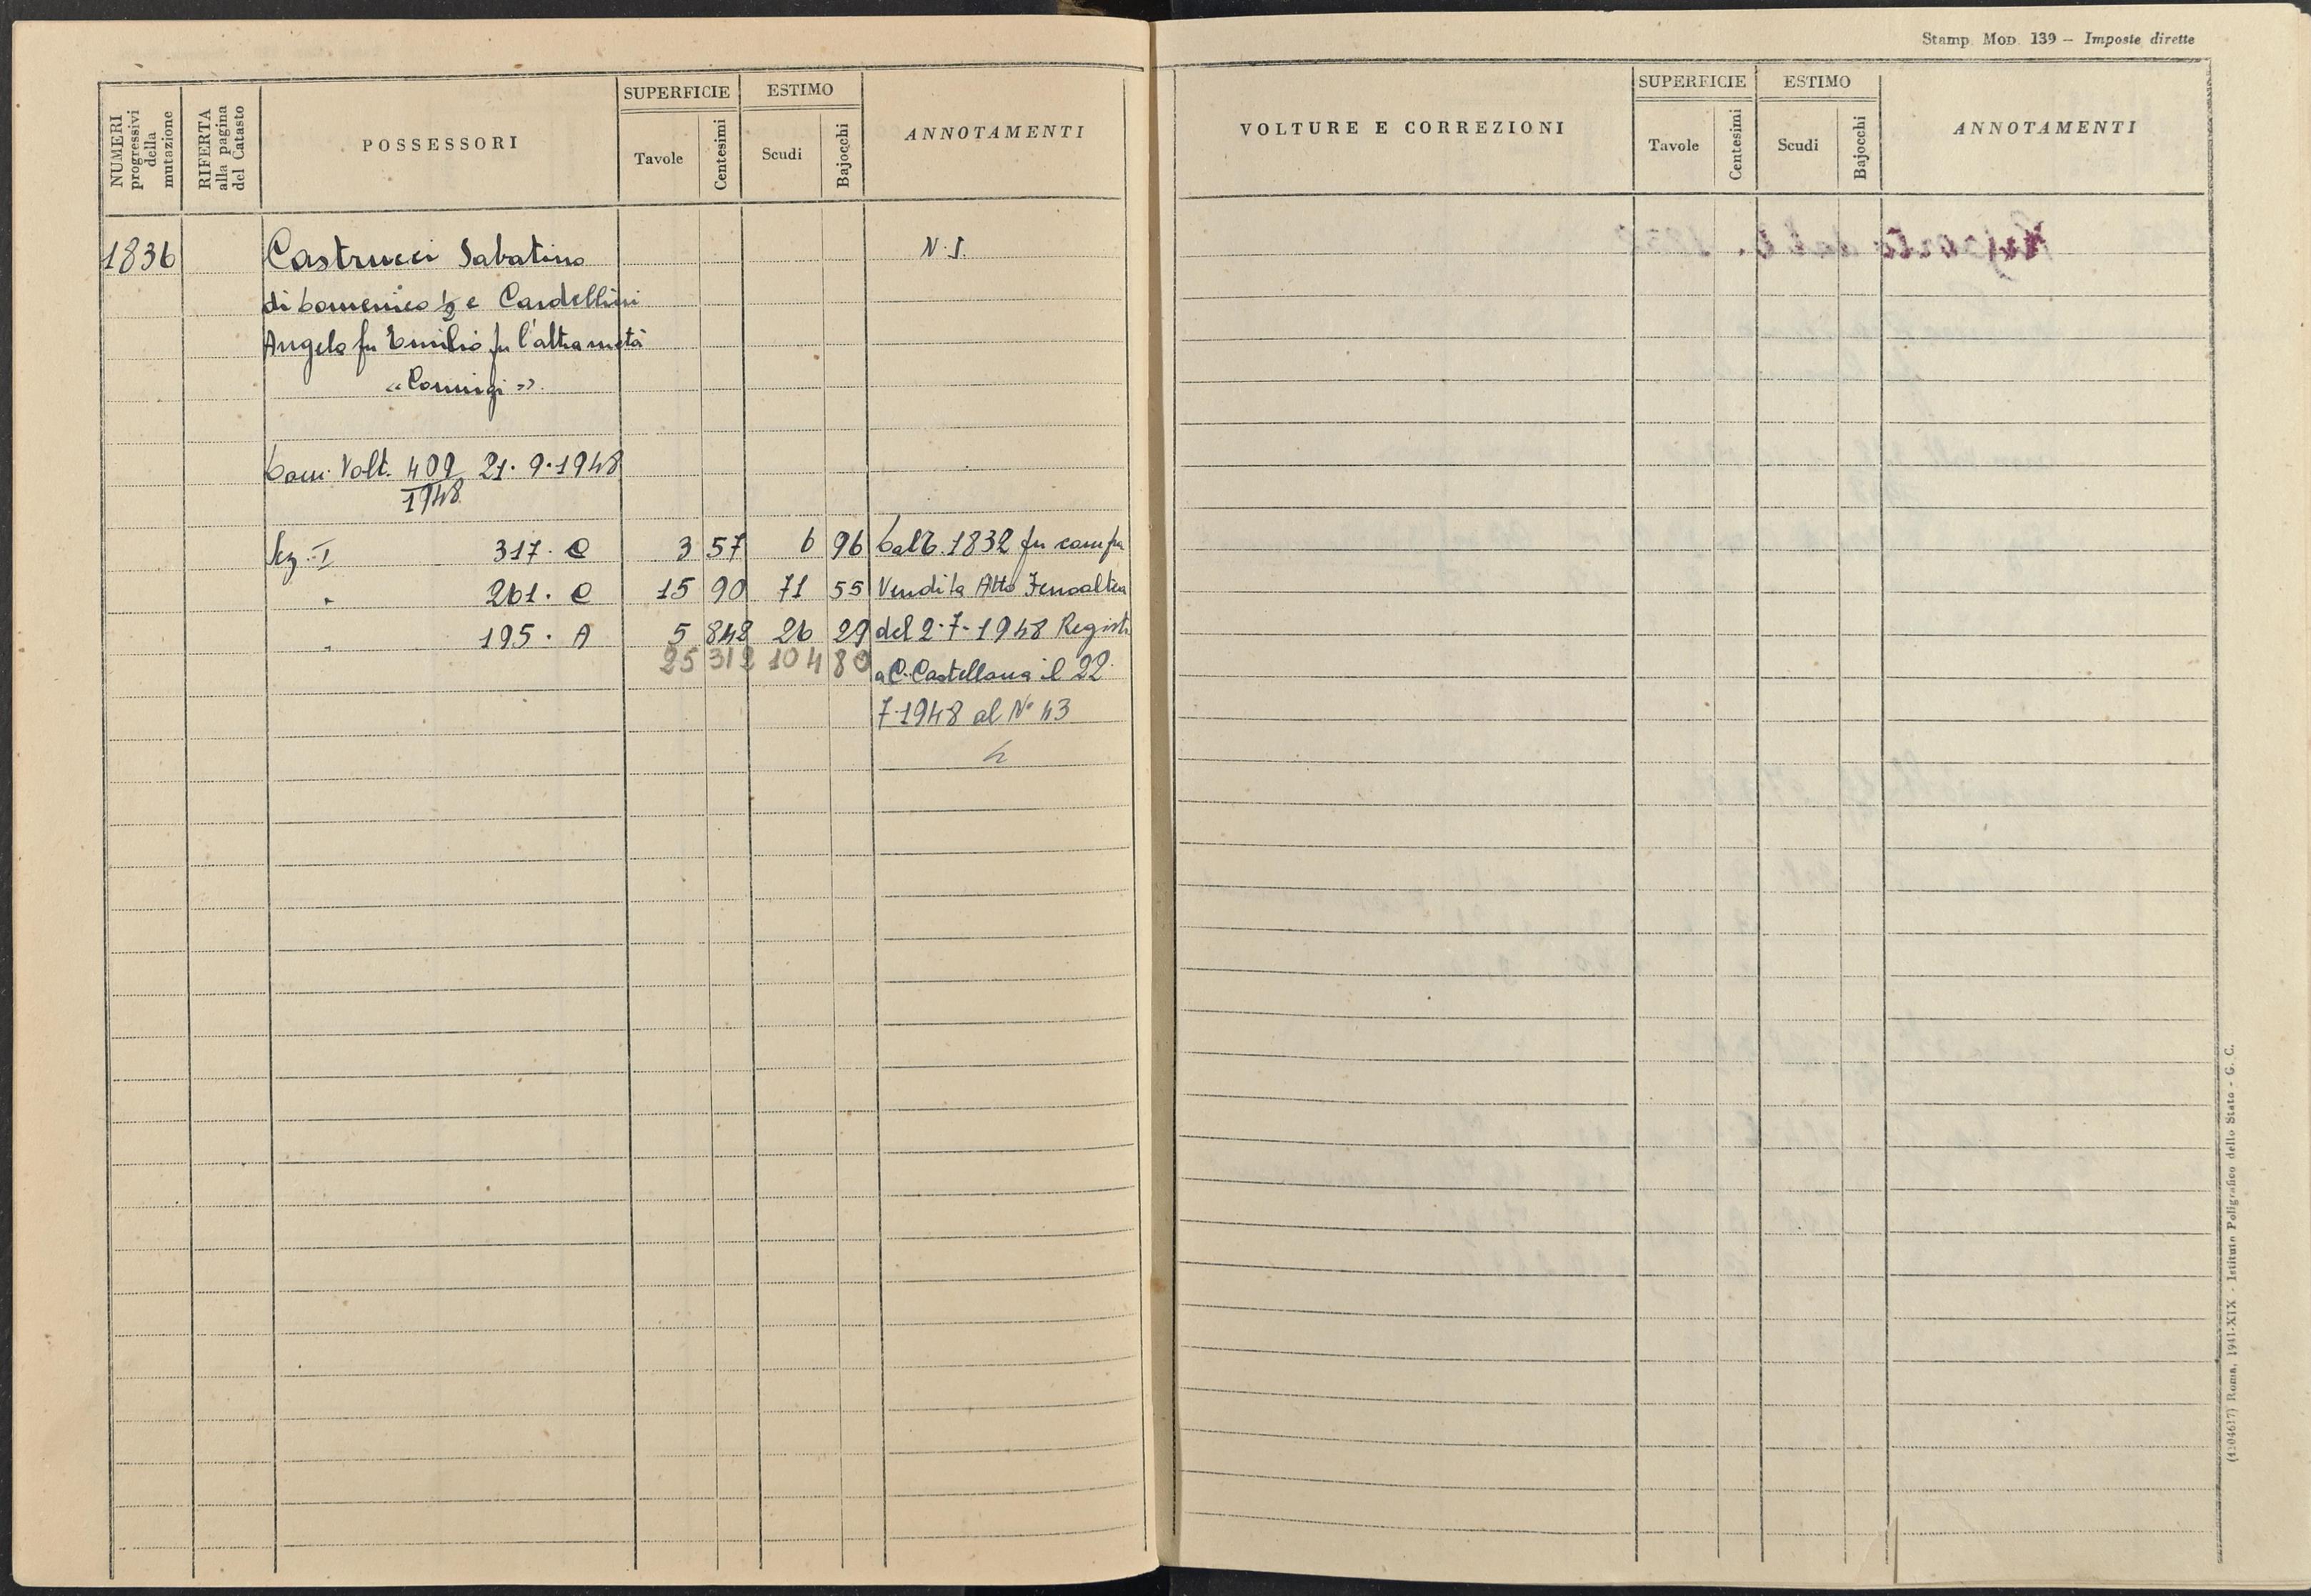 NUMERI progressivi della mutazione
RIFERTA alla pagina del Catasto
POSSESSORI
SUPERFICIE
Tavole
Centesimi
ESTIMO
Scudi
Bajocchi
ANNOTAMENTI
1836
Castrucci Sabatino N. I.
di Domenico ½ e Cardellini
Angelo fu Emilio per l'altra metà
Dom. Volt. 409 21.9.1948
1948
Sez. I 317. C 3 57 6 96 Dal D. 1832 per compra
" 261. C 15 90 71 55 Vendita Atto Fenoaltea
" 195. A 5 842 26 29 del 2.7.1948 Regist.
25 312 104 80 a C. Castellana il 22
7.1948 al N° 43
Stamp. Mod. 139 — Imposte dirette
VOLTURE E CORREZIONI
SUPERFICIE
Tavole
Centesimi
ESTIMO
Scudi
Bajocchi
ANNOTAMENTI
Roma, 1941-XIX - Istituto Poligrafico dello Stato - G. C.